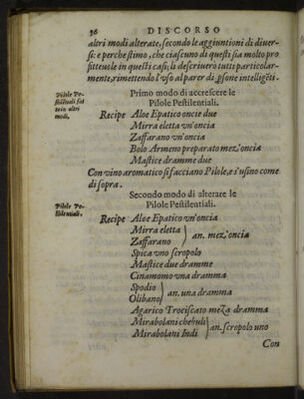 36 DISCORSO
altri modi alterate, secondo le aggiuntioni di diuer-
si: e perche stimo, che ciascuno di questi sia molto pro
fitteuole in questi casi; li descriuerò tutti particolar-
mente, rimettendo l'uso al parer di ꝑsone intelligẽti.
Pilole Pe-
stilẽtiali fat
te in altri
modi.
Primo modo di accrescere le
Pilole Pestilentiali.
Recipe Aloe Epatico oncie due
Mirra eletta vn'oncia
Zaffarano vn'oncia
Bolo Armeno preparato mez'oncia
Mastice dramme due
Con vino aromatico si facciano Pilole, e s'usino come
di sopra.
Pilole Pe-
stilentiali.
Secondo modo di alterare le
Pilole Pestilentiali.
Recipe Aloe Epatico vn'oncia
Mirra eletta
Zaffarano } an. mez'oncia
Spica vno scropolo
Mastice due dramme
Cinamomo vna dramma
Spodio
Olibano } an. una dramma
Agarico Trociscato meza dramma
Mirabolani chebuli
Mirabolani Indi } an. scropolo uno
Con